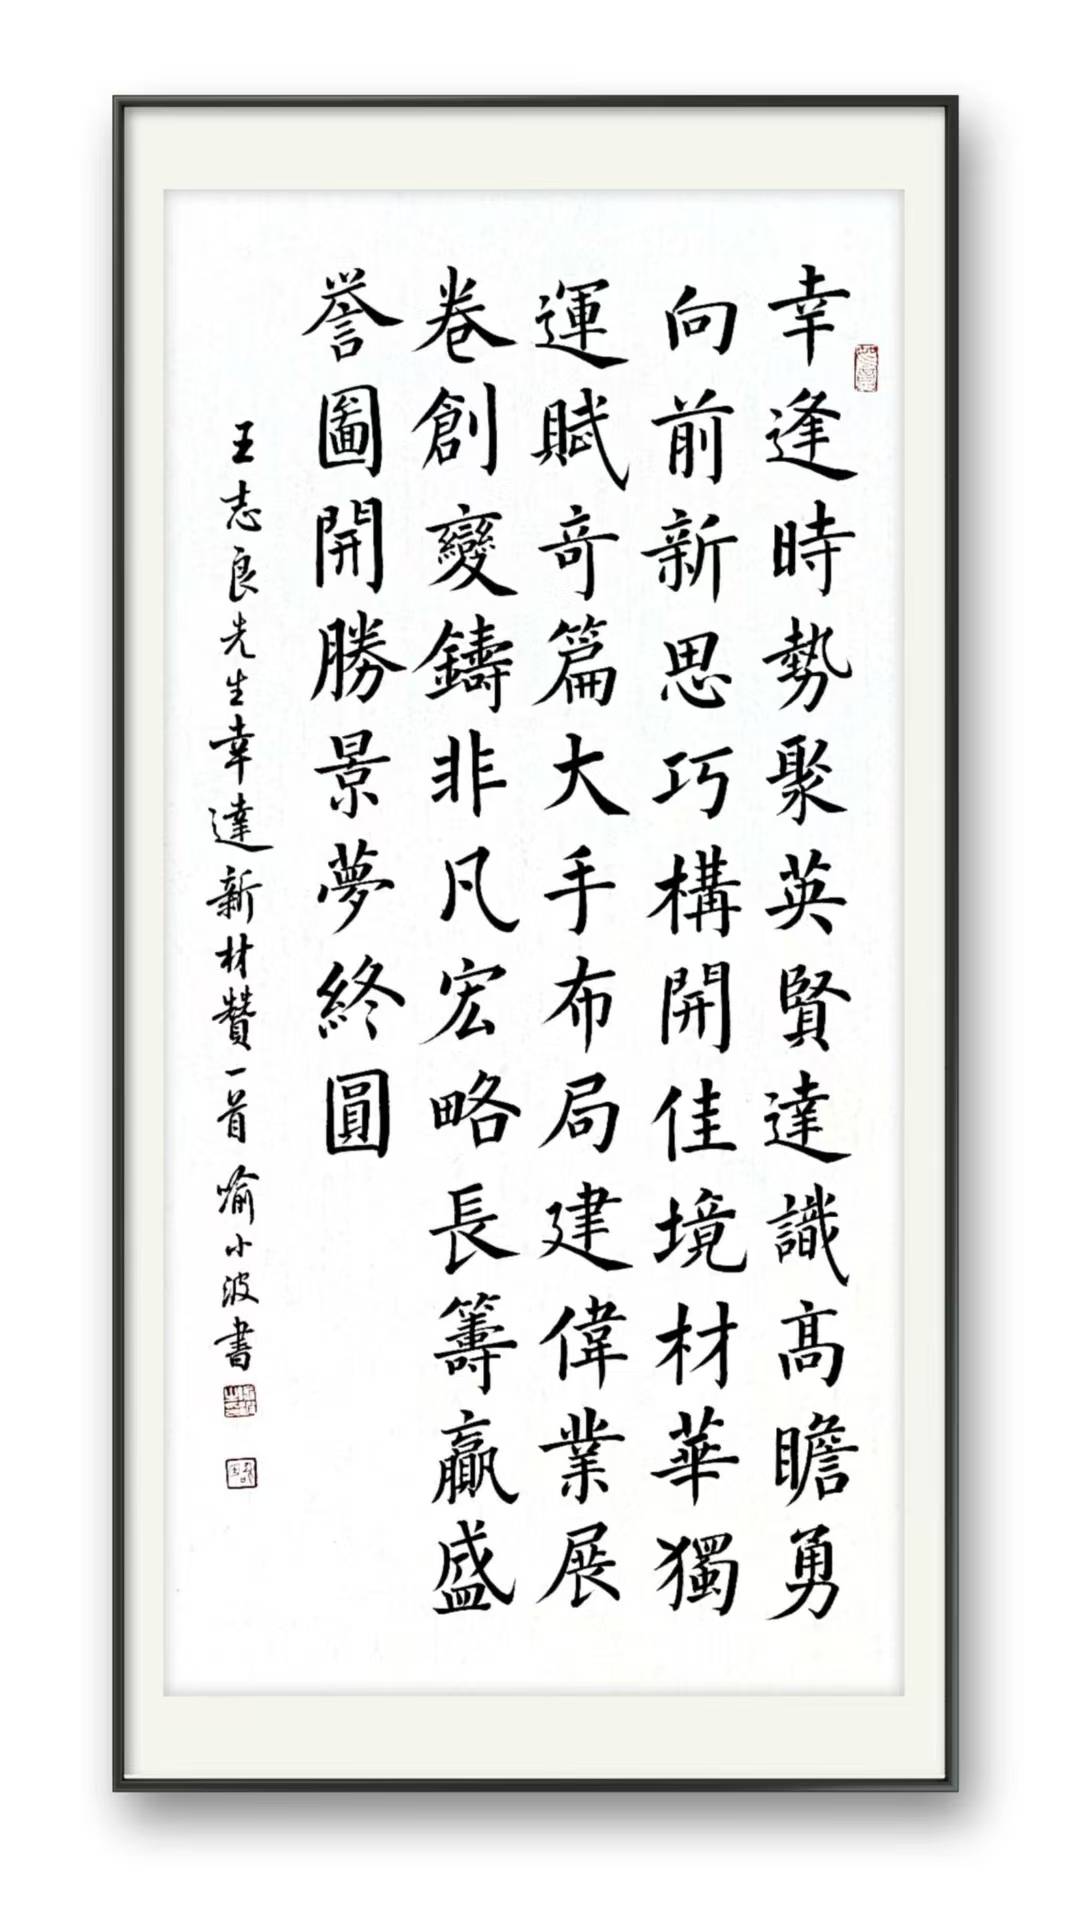 幸逢時勢聚英賢達識高瞻勇
向前新思巧構開佳境材華獨
運賦奇篇大手布局建偉業展
卷創變鑄非凡宏略長籌贏盛
誉圖開勝景夢終圓
王志良先生幸達新材贊一首 喻小波書